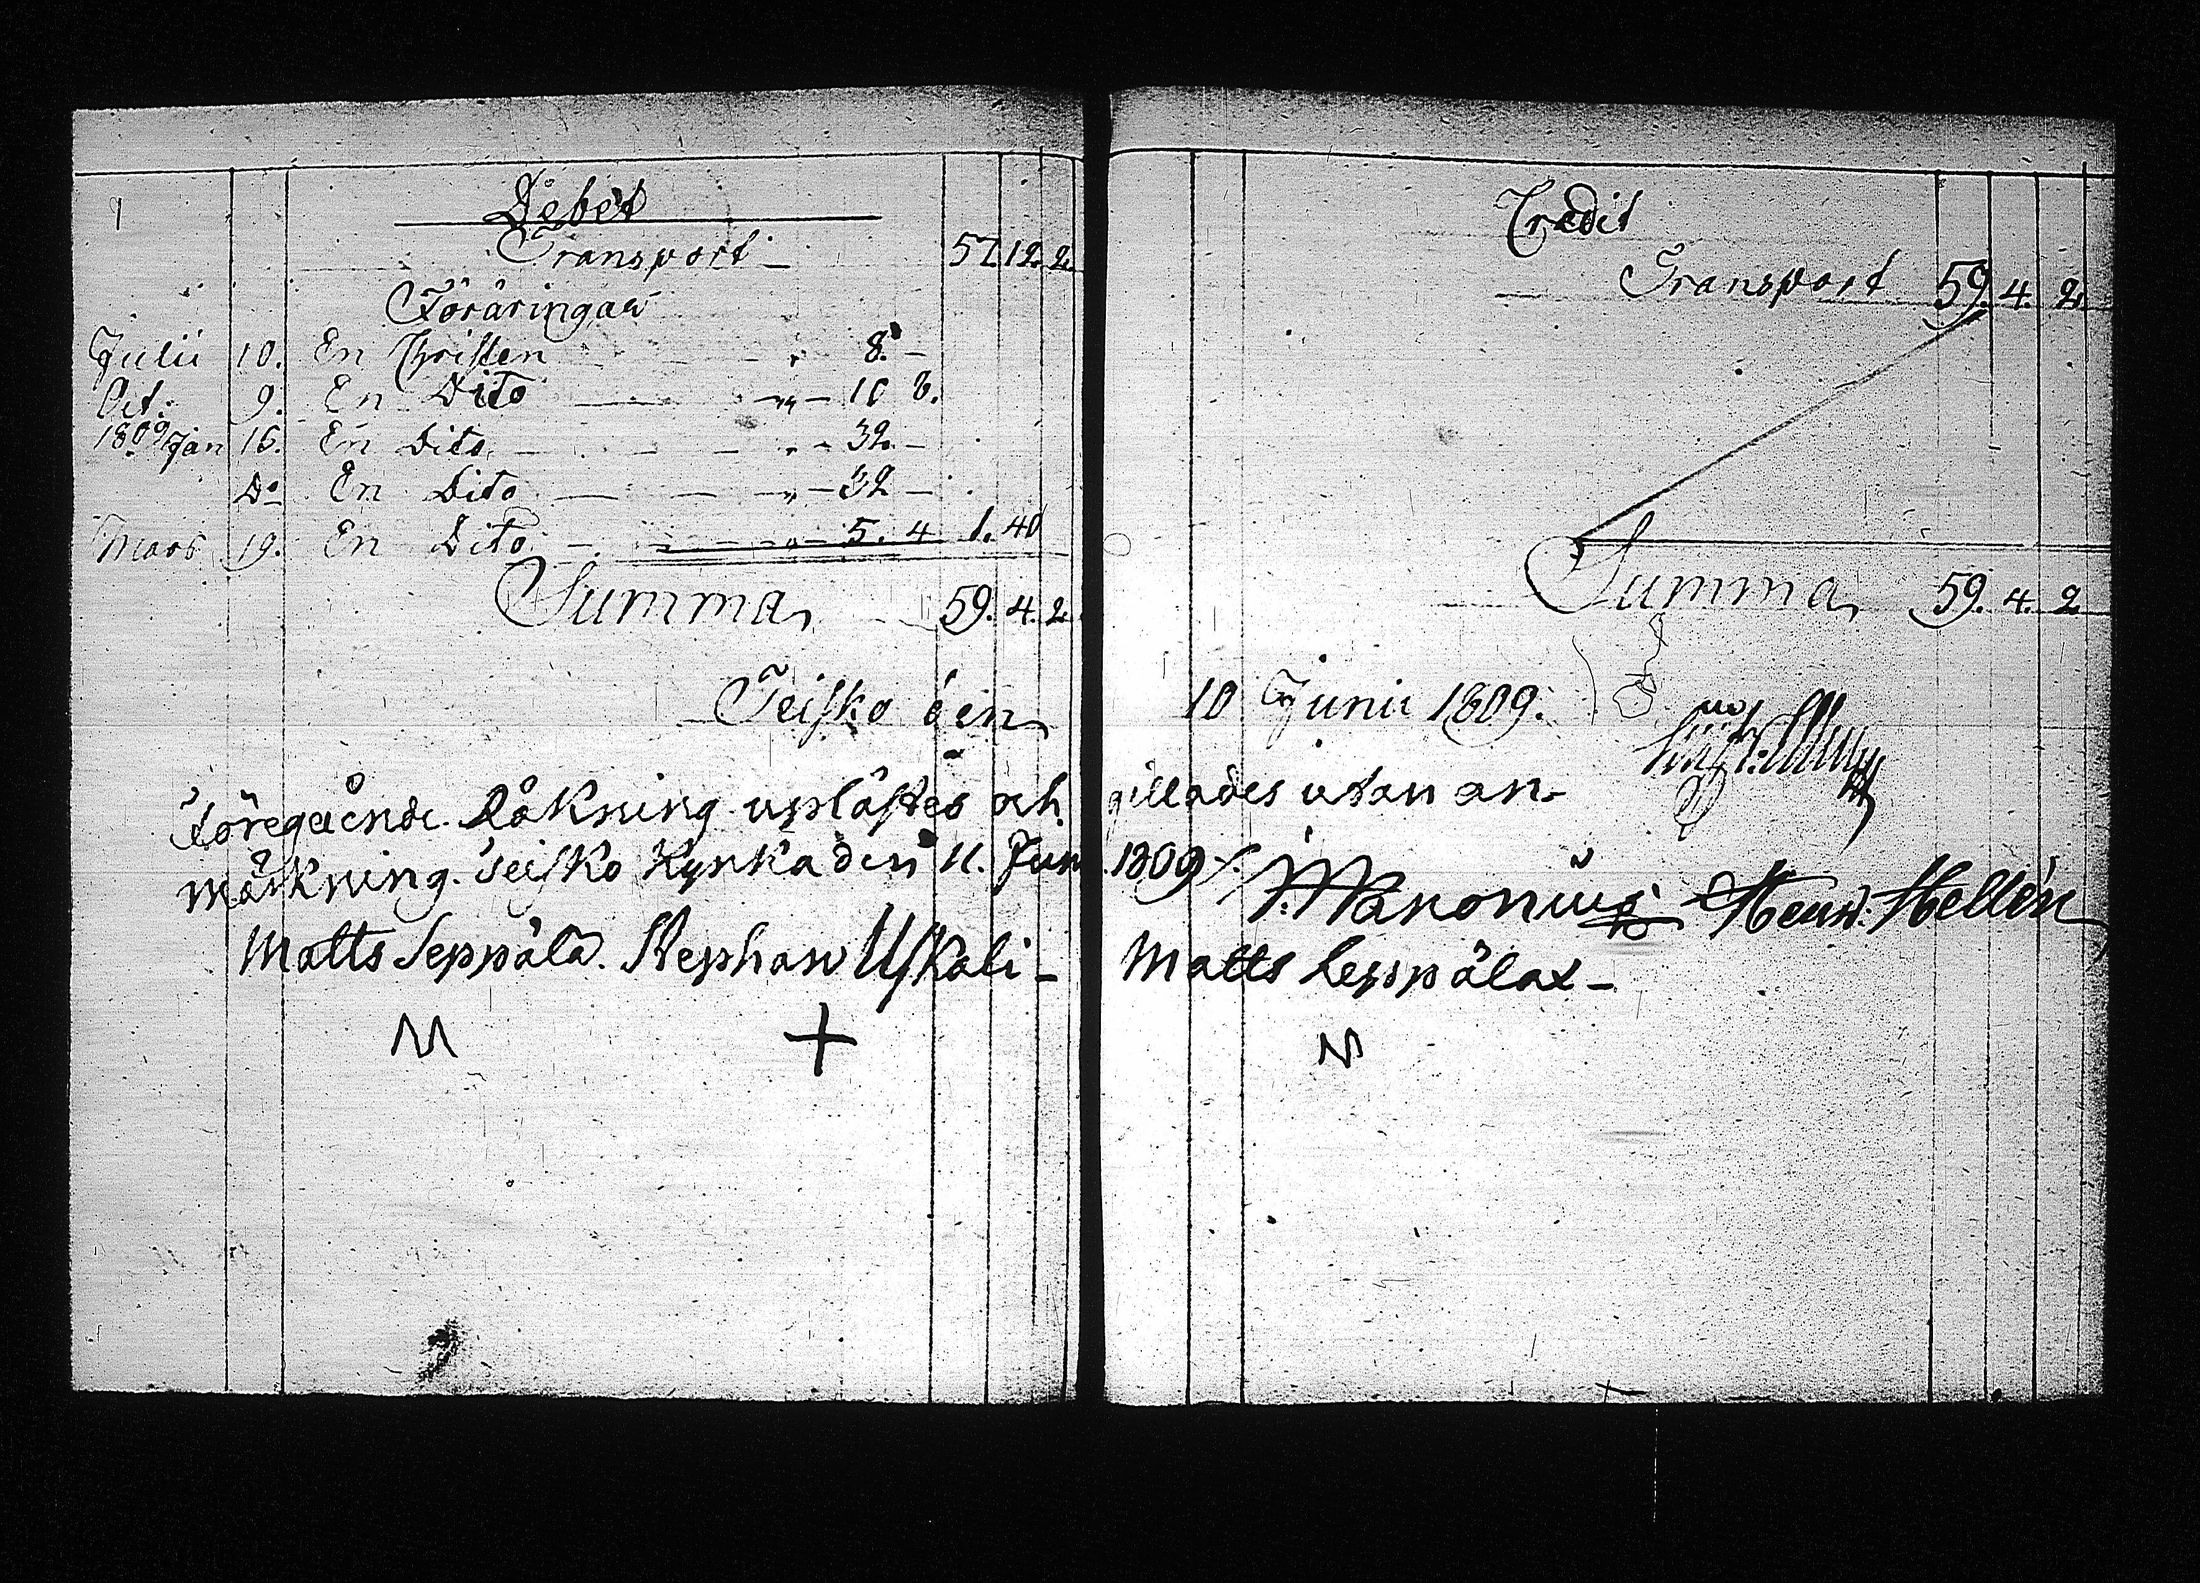 Debet
Transport 57. 12. 2.
Föräringar
Julii 10. En Christen 8. –
Oct. 9. En Dito 10 8.
1809 Jan 15. En Dito 32. –
Do En Dito 32 –
Mars 19. En Dito 5. 4 1. 40
Summa 59. 4. 2
Teisko den
Credit
Transport 59. 4. 2
Summa 59. 4. 2
10 Junii 1809.
Föregående Räkning uplästes och gillades utan an-
märkning. Teisko Kyrka den 11. Jun. 1809. Henr. Hellén
Matts Seppälä. Stephan Uskali – Matts Leppälax –
M + M